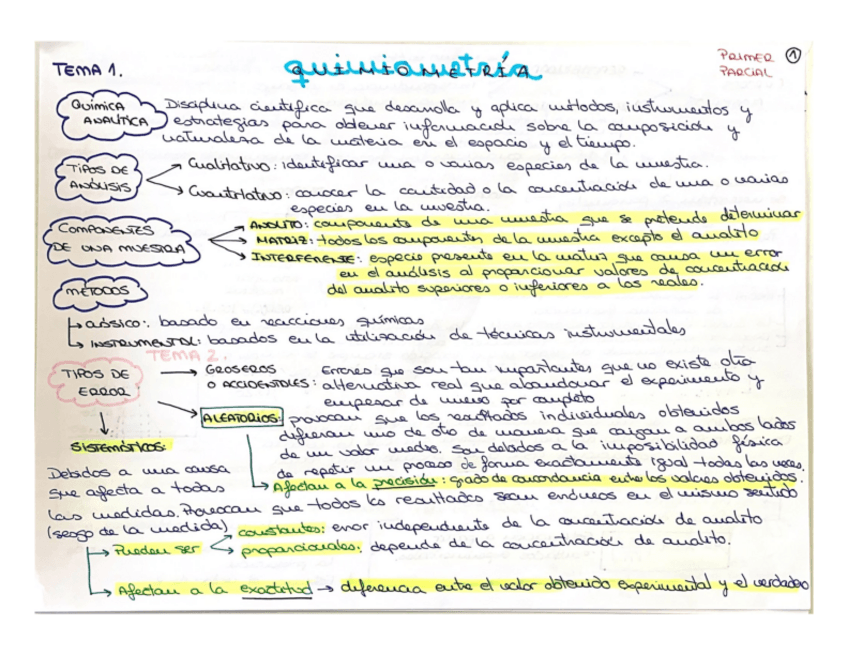 TEMA 1.
quimiometría
QUIMIOMETRÍA
PRIMER PARCIAL
1
QUÍMICA ANALÍTICA
Disciplina científica que desarrolla y aplica métodos, instrumentos y
estrategias para obtener información sobre la composición y
naturaleza de la materia en el espacio y el tiempo.
TIPOS DE ANÁLISIS
→ Cualitativo: identificar una o varias especies de la muestra.
→ Cuantitativo: conocer la cantidad o la concentración de una o varias
especies en la muestra.
COMPONENTES DE UNA MUESTRA
→ ANALITO: componente de una muestra que se pretende determinar
→ MATRIZ: todos los componentes de la muestra excepto el analito
→ INTERFERENTE: especie presente en la matriz que causa un error
en el análisis al proporcionar valores de concentración
del analito superiores o inferiores a los reales.
MÉTODOS
→ CLÁSICO: basado en reacciones químicas
→ INSTRUMENTAL: basados en la utilización de técnicas instrumentales
TEMA 2.
TIPOS DE ERROR
→ GROSEROS
O ACCIDENTALES:
Errores que son tan importantes que no existe otra
alternativa real que abandonar el experimento y
empezar de nuevo por completo
→ ALEATORIOS: provocan que los resultados individuales obtenidos
difieran uno de otro de manera que caigan a ambos lados
de un valor medio. Son debidos a la imposibilidad física
de repetir un proceso de forma exactamente igual todas las veces.
→ Afectan a la precisión: grado de concordancia entre los valores obtenidos.
SISTEMÁTICOS:
Debidos a una causa
que afecta a todas
las medidas. Provocan que todos los resultados sean erróneos en el mismo sentido
(sesgo de la medida)
→ Pueden ser
constantes: error independiente de la concentración de analito
→ proporcionales: depende de la concentración de analito.
→ Afectan a la exactitud → diferencia entre el valor obtenido experimental y el verdadero